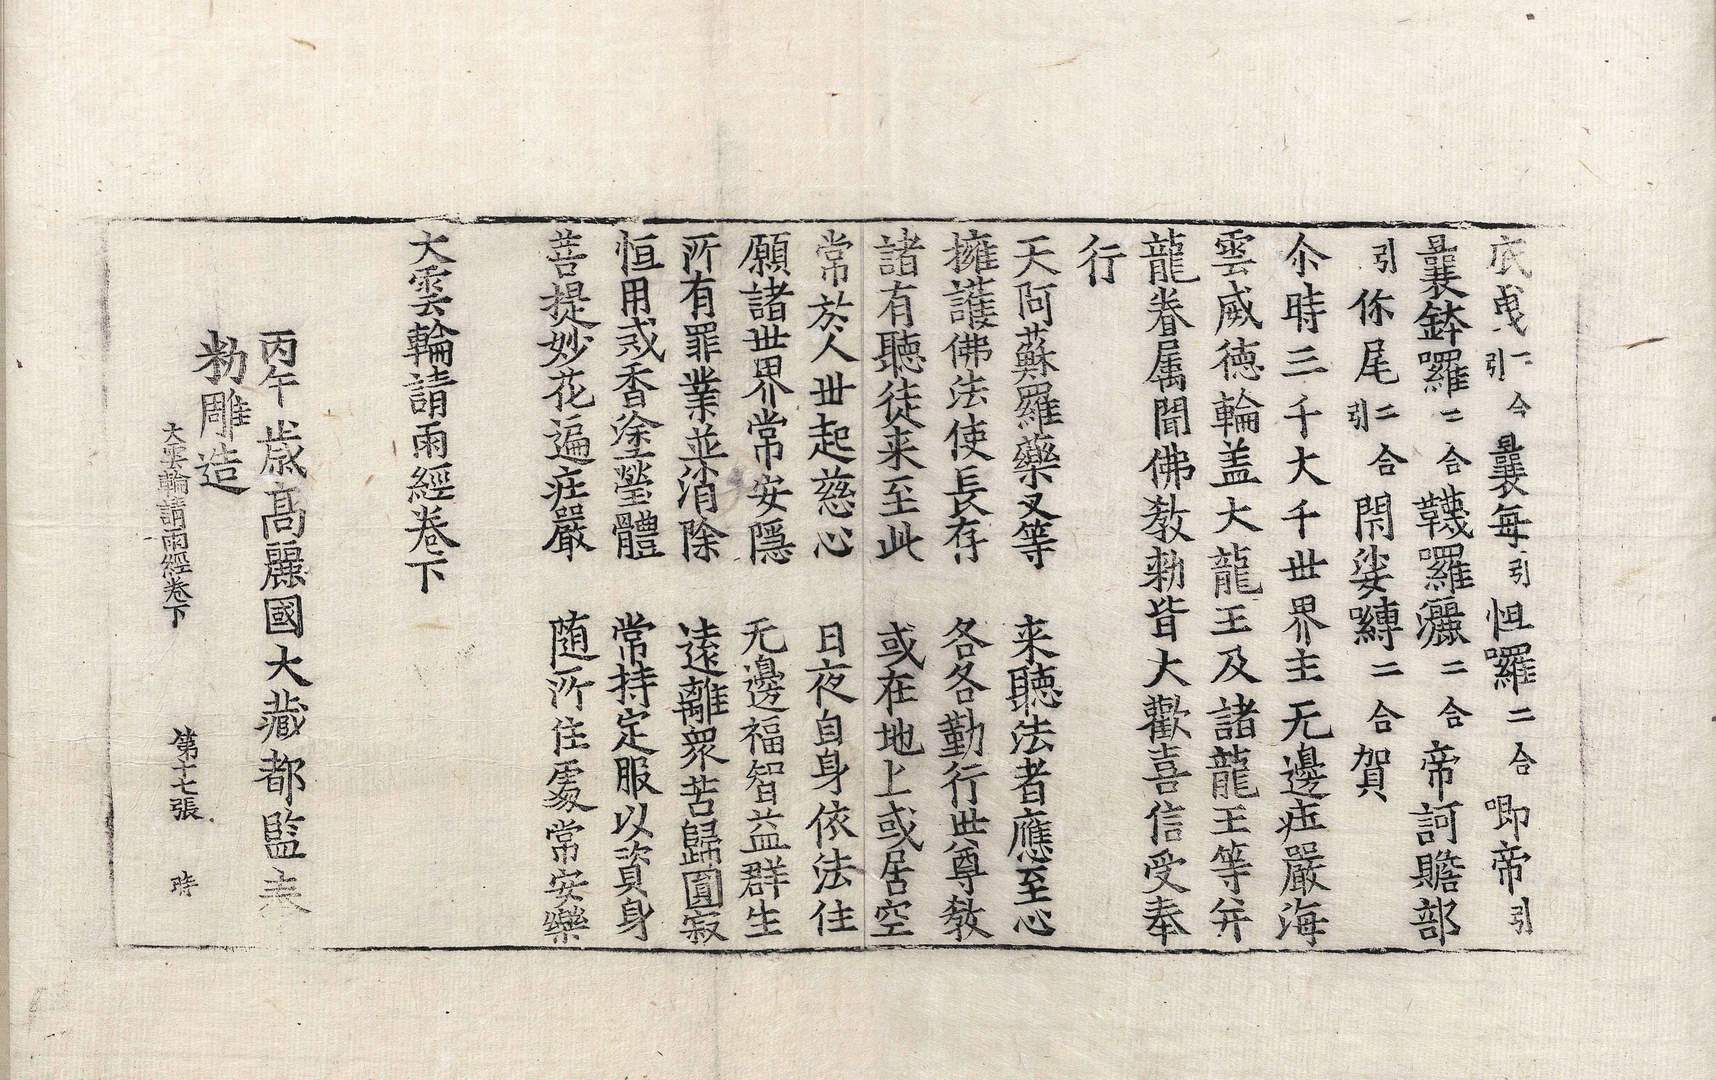 底曳二合引曩每引怛囉二合唧帝引
曩鉢囉二合韈囉灑二合帝訶贍部
引你尾二合引閇娑嚩二合賀
尒時三千大千世界主无邊庄嚴海
雲威德輪盖大龍王及諸龍王等并
龍眷属聞佛教勑皆大歡喜信受奉
行
天阿蘇羅藥叉等　来聽法者應至心
擁護佛法使長存　各各勤行世尊教
諸有聽徒来至此　或在地上或居空
常於人世起慈心　日夜自身依法住
願諸世界常安隱　无邊福智益群生
所有罪業並消除　遠離衆苦歸圓寂
恒用戒香塗瑩體　常持定服以資身
菩提妙花遍庄嚴　随所住處常安樂
大雲輪請雨經卷下
丙午歲高麗國大藏都監奉
勑雕造
大雲輪請雨經卷下　第十七張　時